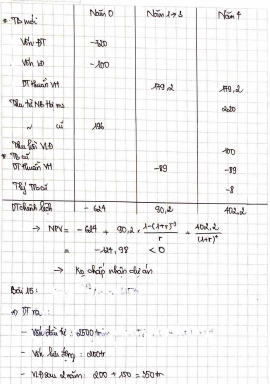 Năm 0 Năm 1 → 3 Năm 4
* TB mới
Vốn ĐT -720
Vốn LĐ -100
DT thuần VH 179,2 179,2
Thu từ NB TB ms 220
~ cũ 196
Thu hồi VLĐ 100
* TB cũ
DT thuần VH -89 -89
Thý TB cũ -8
DT chênh lệch -624 90,2 402,2
→ NPV = -624 + 90,2 × \frac{1-(1+r)^{-3}}{r} + \frac{402,2}{(1+r)^4}
= -124,98 < 0
→ Ko chấp nhận dự án
Bài 15:
DT ra:
- Vốn đầu tư : 2500tr
- Vốn lưu động : 200tr
- VLĐ sau 2 năm : 200 + 150 = 350tr